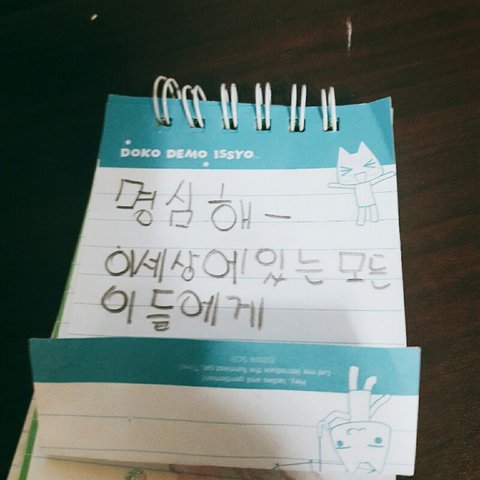 DOKO DEMO ISSYO
명심해 -
이세상에 있는 모든
이들에게
Hey, ladies and gentlemen!
Let me introduce the funniest cat, Toro!